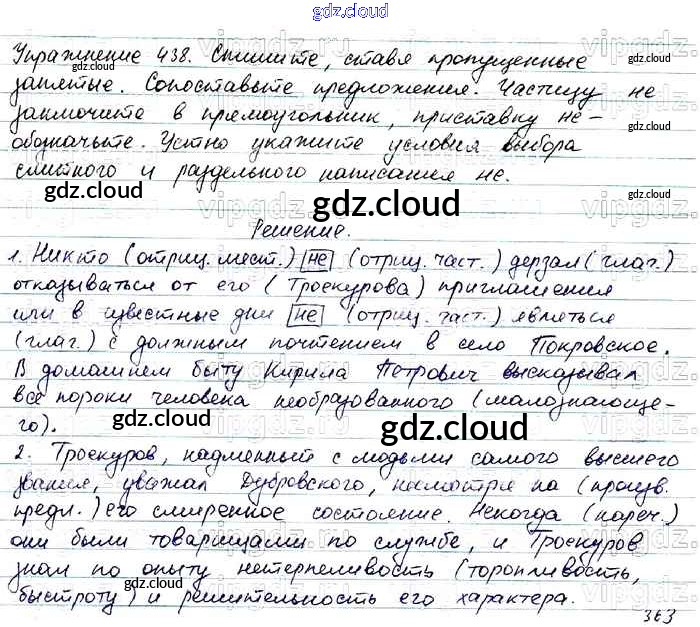 gdz.cloud
Упражнение 438. Спишите, ставя пропущенные
запятые. Сопоставьте предложения. Частицу не
заключите в прямоугольник, приставку не-
обозначьте. Устно укажите условия выбора
слитного и раздельного написания не.
gdz.cloud
Решение.
1. Никто (отриц. мест.) не (отриц. част.) дерзал (глаг.)
отказываться от его (Троекурова) приглашения
или в известные дни не (отриц. част.) являться
(глаг.) с должным почтением в село Покровское.
В домашнем быту Кирила Петрович высказывал
все пороки человека необразованного (малознающе-
го).
gdz.cloud
2. Троекуров, надменный с людьми самого высшего
звания, уважал Дубровского, несмотря на (произв.
предл.) его смиренное состояние. Некогда (нареч.)
они были товарищами по службе, и Троекуров
знал по опыту нетерпеливость (торопливость,
быстроту) и решительность его характера.
363